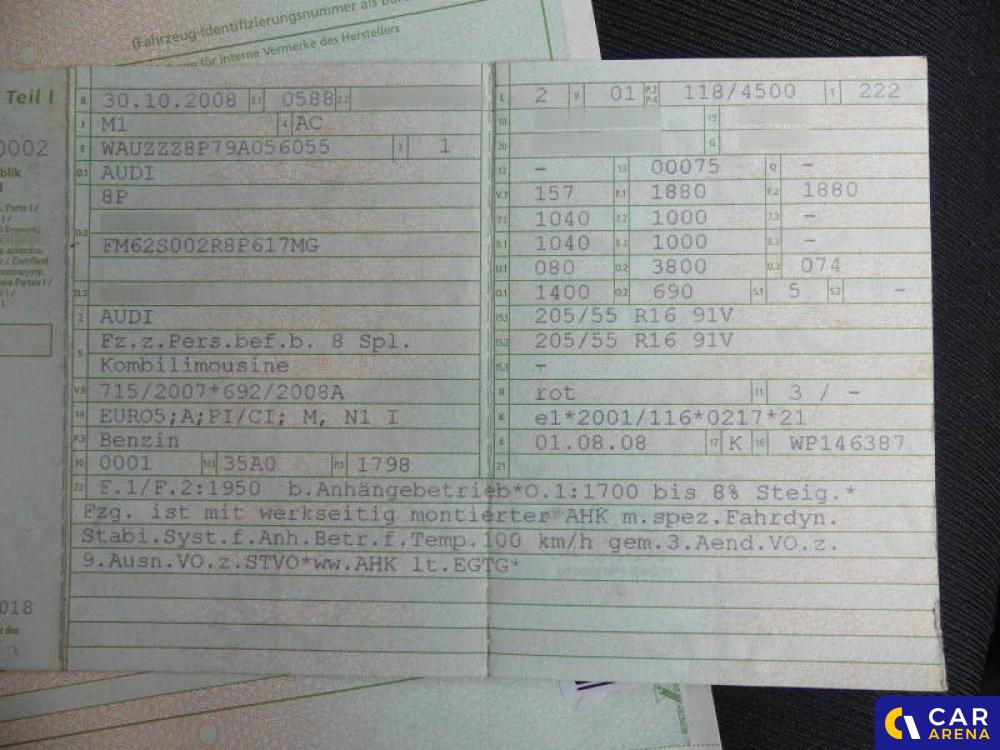 (Fahrzeug-Identifizierungsnummer als
für interne Vermerke des Herstellers
Teil I
0002
018
B 30.10.2008 2.1 0588 2.2
J M1 4 AC
E WAUZZZ8P79A056055 3 1
D.1 AUDI
8P
D.2
FM62S002R8P617MG
D.3
2 AUDI
5 Fz.z.Pers.bef.b. 8 Spl.
Kombilimousine
V.9 715/2007*692/2008A
14 EURO5;A;PI/CI; M, N1 I
P.3 Benzin
10 0001 14.1 35A0 P.1 1798
L 2 9 01 P.2 P.4 118/4500 T 222
18 19
20 G
12 - 13 00075 Q -
V.7 157 F.1 1880 F.2 1880
7.1 1040 7.2 1000 7.3 -
8.1 1040 8.2 1000 8.3 -
U.1 080 U.2 3800 U.3 074
O.1 1400 O.2 690 S.1 5 S.2 -
15.1 205/55 R16 91V
15.2 205/55 R16 91V
15.3 -
R rot 11 3 / -
K e1*2001/116*0217*21
6 01.08.08 17 K 16 WP146387
21
22 F.1/F.2:1950 b.Anhängebetrieb*O.1:1700 bis 8% Steig.*
Fzg. ist mit werkseitig montierter AHK m.spez.Fahrdyn.
Stabi.Syst.f.Anh.Betr.f.Temp.100 km/h gem.3.Aend.VO.z.
9.Ausn.VO.z.STVO*ww.AHK lt.EGTG*
CAR
ARENA